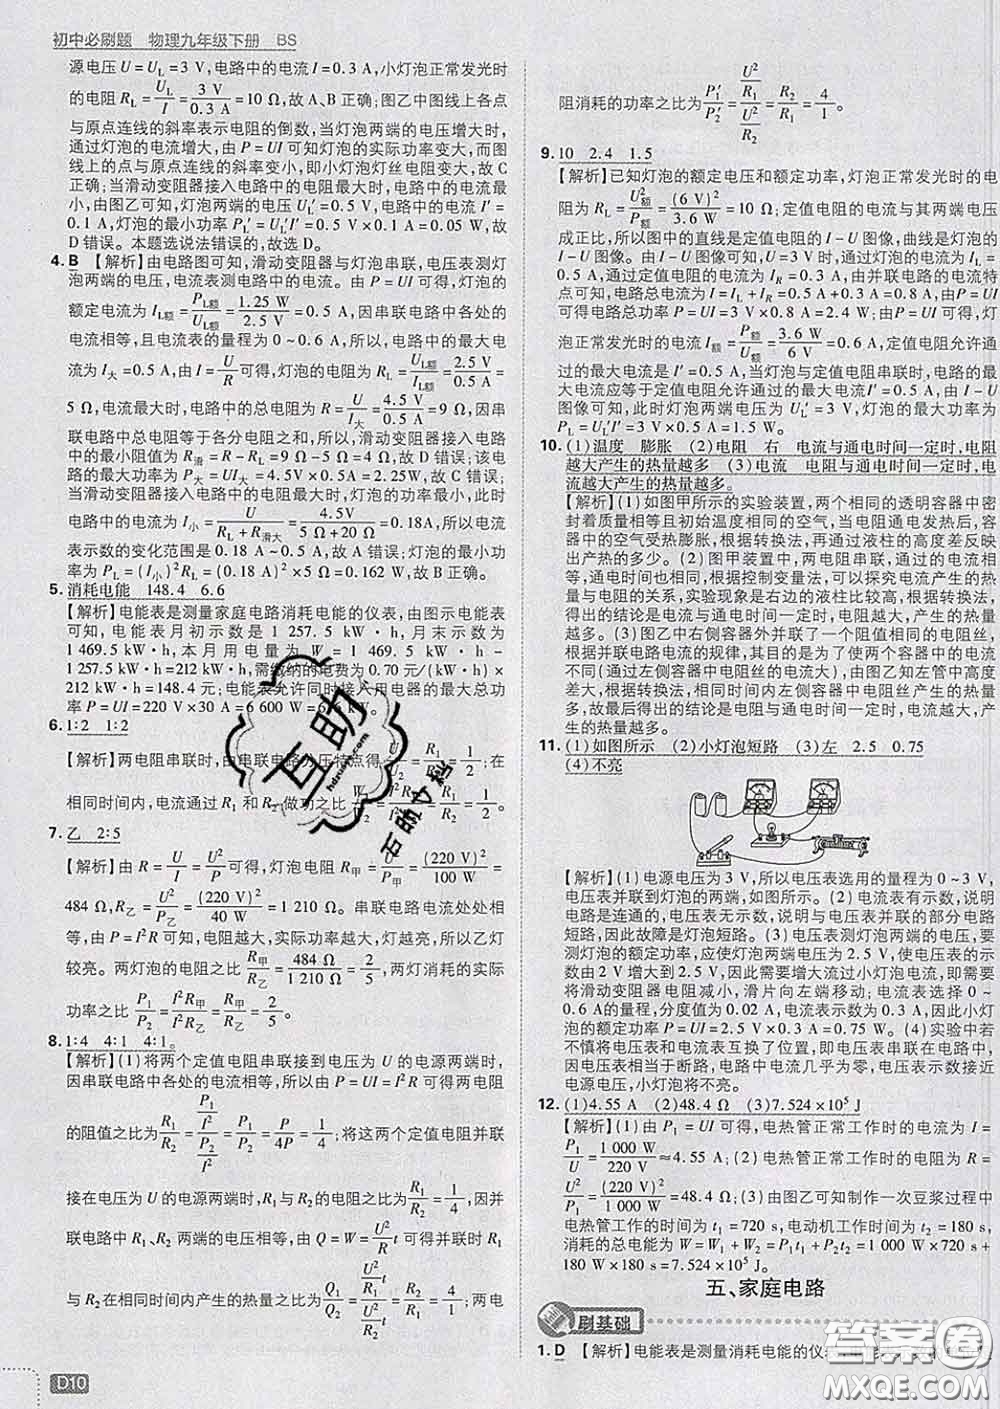 初中必刷题 物理九年级下册 BS
源电压 U = U_L = 3 V，电路中的电流 I = 0.3 A，小灯泡正常发光时
的电阻 R_L = U_L/I = 3 V/0.3 A = 10 Ω，故A、B正确；图乙中图线上各点
与原点连线的斜率表示电阻的倒数，当灯泡两端的电压增大时，
通过灯泡的电流增大，由 P = UI 可知灯泡的实际功率变大，而图
线上的点与原点连线的斜率变小，即小灯泡灯丝电阻变大，故C
正确；当滑动变阻器接入电路中的电阻最大时，电路中的电流最
小，由图乙可知，灯泡两端的电压 U_L′ = 0.5 V，电路中的电流 I′ =
0.1 A，灯泡的最小功率 P_L′ = U_L′I′ = 0.5 V × 0.1 A = 0.05 W，故
D错误。本题选说法错误的，故选D。
4. B 【解析】由电路图可知，滑动变阻器与灯泡串联，电压表测灯
泡两端的电压，电流表测电路中的电流。由 P = UI 可得，灯泡的
额定电流为 I_L额 = P_L额/U_L额 = 1.25 W/2.5 V = 0.5 A，因串联电路中各处的
电流相等，且电流表的量程为 0~0.6 A，所以，电路中的最大电
流为 I大 = 0.5 A，由 I = U/R 可得，灯泡的电阻 R_L = U_L额/I_L额 = 2.5 V/0.5 A =
5 Ω，电流最大时，电路中的总电阻 R = U/I大 = 4.5 V/0.5 A = 9 Ω，因串
联电路中总电阻等于各分电阻之和，所以，滑动变阻器接入电路
中的最小阻值 R滑 = R − R_L = 9 Ω − 5 Ω = 4 Ω，故C错误；该电
路的最大功率为 P大 = UI大 = 4.5V × 0.5A = 2.25 W，故D错误；当
滑动变阻器接入电路中的电阻最大时，灯泡的功率最小，此时
电路中的电流为 I小 = U/(R_L + R滑大) = 4.5V/(5 Ω + 20 Ω) = 0.18A，所以电流
表示数的变化范围是 0.18 A~0.5 A，故A错误；灯泡的最小功
率 P_L = (I小)²R_L = (0.18 A)² × 5 Ω = 0.162 W，故B正确。
5. 消耗电能 148.4 6.6
【解析】电能表是测量家庭电路消耗电能的仪表，由图示电能表
可知，电能表月初示数是 1 257.5 kW·h，月末示数为
1 469.5 kW·h，本月用电量为 W = 1 469.5 kW·h −
1 257.5 kW·h = 212 kW·h，需缴纳的电费为 0.70 元/(kW·h) ×
212 kW·h = 148.4 元；电能表允许同时接入用电器的最大总功
率 P = UI = 220 V × 30 A = 6 600 W = 6.6 kW。
6. 1∶2 1∶2
【解析】两电阻串联时，由串联电路分压特点得 U1/U2 = R1/R2 = 1/2；在
相同时间内，电流通过 R1 和 R2 做功之比 W1/W2 = I²R1t/I²R2t = R1/R2 = 1/2。
7. 乙 2∶5
【解析】由 R = U/I = U²/P 可得，灯泡电阻 R甲 = U²/P甲 = (220 V)²/100 W =
484 Ω，R乙 = U²/P乙 = (220 V)²/40 W = 1 210 Ω。串联电路电流处处相
等，由 P = I²R 可知，电阻越大，实际功率越大，灯越亮，所以乙灯
较亮。两灯泡的电阻之比 R甲/R乙 = 484 Ω/1 210 Ω = 2/5，两灯消耗的实际
功率之比 P1/P2 = I²R甲/I²R乙 = R甲/R乙 = 2/5。
8. 1∶4 4∶1 4∶1。
【解析】(1)将两个定值电阻串联接到电压为 U 的电源两端时，
因串联电路中各处的电流相等，所以由 P = UI = I²R 可得两电阻
的阻值之比为 R1/R2 = (P1/I²)/(P2/I²) = P1/P2 = P/4P = 1/4；将这两个定值电阻并联
接在电压为 U 的电源两端时，R1 与 R2 的电阻之比为 R1/R2 = 1/4，因并
联电路中 R1、R2 两端的电压相等，由 Q = W = U²/R t 可得并联时 R1
与 R2 在相同时间内产生的热量之比为 Q1/Q2 = (U²/R1 t)/(U²/R2 t) = R2/R1 = 4/1；两电
D10
阻消耗的功率之比为 P1′/P2′ = (U²/R1)/(U²/R2) = R2/R1 = 4/1。
9. 10 2.4 1.5
【解析】已知灯泡的额定电压和额定功率，灯泡正常发光时的电
阻为 R_L = U额²/P额 = (6 V)²/3.6 W = 10 Ω；定值电阻的电流与其两端电压
成正比，所以图中的直线是定值电阻的 I − U 图像，曲线是灯泡的
I − U 图像。由图像可知，U = 3 V 时，通过灯泡的电流为 I_L =
0.5 A，通过定值电阻的电流为 I_R = 0.3 A，由并联电路的电流特
点可知，电路总电流为 I = I_L + I_R = 0.5 A + 0.3 A = 0.8 A，由 P = UI
可得电路总功率为 P = UI = 3 V × 0.8 A = 2.4 W；由 P = UI 可得，灯
泡正常发光时的电流 I额 = P额/U额 = 3.6 W/6 V = 0.6 A，定值电阻允许通
过的最大电流是 0.5 A，当灯泡与定值电阻串联时，电路中的最
大电流应等于定值电阻允许通过的最大电流 I′ = 0.5 A，由 I − U
图像可知，此时灯泡两端电压为 U_L′ = 3 V，灯泡的最大功率为
P_L = U_L′I′ = 3 V × 0.5 A = 1.5 W。
10. (1)温度 膨胀 (2)电阻 右 电流与通电时间一定时，电阻
越大产生的热量越多 (3)电流 电阻与通电时间一定时，电
流越大产生的热量越多。
【解析】(1)如图甲所示的实验装置，两个相同的透明容器中密
封着质量相等且初始温度相同的空气，当电阻通电发热后，容
器中的空气受热膨胀，根据转换法，再通过液柱的高度差反映
出产热的多少。(2)图甲装置中，两电阻串联，通过的电流相
同，通电时间相同，根据控制变量法，可以探究电流产生的热量
与电阻的关系，实验现象是右边的液柱比较高，根据转换法，
得出的结论是电流与通电时间一定时，电阻越大，产生的热量
越多。(3)图乙中右侧容器外并联了一个阻值相同的电阻丝，
根据并联电路电流的规律，其目的是为了使两个容器中的电流
不同(通过左侧容器中电阻丝的电流大)，由图乙知左管中高度
差大，根据转换法，相同时间内左侧容器中电阻丝产生的热量
多，故最后得出的结论是电阻与通电时间一定时，电流越大，产
生的热量越多。
11. (1)如图所示 (2)小灯泡短路 (3)左 2.5 0.75
(4)不亮
【解析】(1)电源电压为 3 V，所以电压表选用的量程为 0~3 V，
电压表并联到灯泡的两端，如图所示。(2)电流表有示数，说明
电路是连通的，电压表无示数，说明与电压表并联的部分电路
短路，因此故障是灯泡短路。(3)电压表测灯泡两端的电压，要
测灯泡的额定功率，应使灯泡两端电压为 2.5 V，使电压表的示
数由 2 V 增大到 2.5 V，因此需要增大流过小灯泡电流，即需将
滑动变阻器电阻减小，滑片向左端移动；电流表选择 0~
0.6 A 的量程，分度值为 0.02 A，电流表示数为 0.3 A，因此小灯
泡的额定功率 P = UI = 2.5 V × 0.3 A = 0.75 W。(4)实验中若
不慎将电压表和电流表互换了位置，即电压表串联在电路中，
因电压表相当于断路，电路中电流几乎为零，电压表示数接近
电源电压，小灯泡将不亮。
12. (1)4.55 A (2)48.4 Ω (3)7.524 × 10⁵ J
【解析】(1)由 P1 = UI 可得，电热管正常工作时的电流为 I =
P1/U = 1 000 W/220 V ≈ 4.55 A；(2)电热管正常工作时的电阻为 R =
U²/P1 = (220 V)²/1 000 W = 48.4 Ω；(3)由图乙可知制作一次豆浆过程中
电热管工作的时间为 t1 = 720 s，电动机工作时间为 t2 = 180 s，
消耗的总电能为 W = W1 + W2 = P1t1 + P2t2 = 1 000 W × 720 s +
180 W × 180 s = 7.524 × 10⁵ J。
五、家庭电路
刷基础
1. D 【解析】电能表是测量消耗电能的仪
互助
hdzuoye.com
答案圈
MXQE.COM